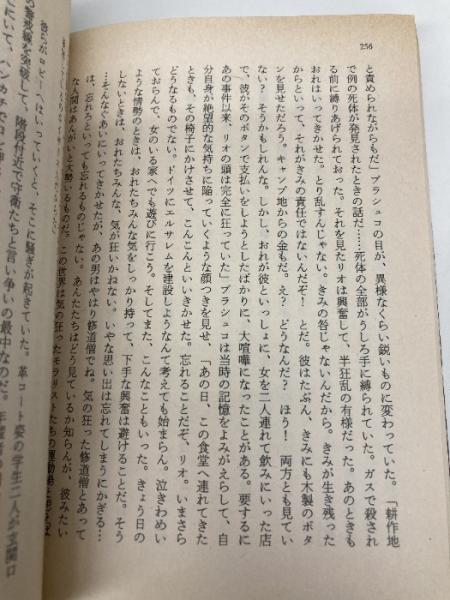 256
と責められながらもだ」ブラシュコの目が、異様なくらい鋭いものに変わっていた。「耕作地
で例の死体が発見されたときの話だ……死体の全部がうしろ手に縛られていた。ガスで殺され
る前に縛りあげられておった。それを見たリオは興奮して、半狂乱の有様だった。あのときも
おれはいってきかせた。とり乱すんじゃない。きみの咎じゃないんだから。きみが生き残った
からといって、それがきみの責任ではないんだぞ！　とだ。彼はたぶん、きみにも木製のボタ
ンを見せただろう。キャンプ地からの金もだ。え？　どうなんだ？　ほう！　両方とも見てい
ない？　そうかもしれんな。しかし、おれが彼といっしょに、女を二人連れて飲みにいった店
で、彼がそのボタンで支払いをしようとしたばかりに、大喧嘩になったことがある。要するに
あの事件以来、リオの頭は完全に狂っていた」ブラシュコは当時の記憶をよみがえらして、自
分自身が絶望的な気持ちに陥っていくような顔つきを見せ、「あの日、この食堂へ連れてきた
ときも、その椅子にかけさせて、こんこんといいきかせた。忘れることだぞ、リオ。いまさら
どうなるものでない。ドイツにエルサレムを建設しようなんて考えても始まらん。泣きわめい
ておらんで、女のいる家へでも遊びに行こう。そしてまた、こんなこともいった。きょう日の
ような情勢のときは、おれたちみんな、気をしっかり持って、下手な興奮は避けることだ。そう
しないときは、おれたちみんな、気が狂いかねない。いやな思い出は忘れてしまうにかぎる…
…そんなぐあいにいってきかせたが、あの男はやはり修道僧でね。気の狂った修道僧とあって
は、忘れろといっても忘れるものじゃない。あんたたちはどう見ているか知らんが、彼みたい
な人間はあんがいとも勢いるものだ。この世界は気の狂ったモラリストたちの運動
彼らがロビーにはいっていくと、そこに騒ぎが起きていた。革コート姿の学生二人が玄関口
の警戒線を突破して、階段付近で守衛たちと言い争いの最中なのだ。